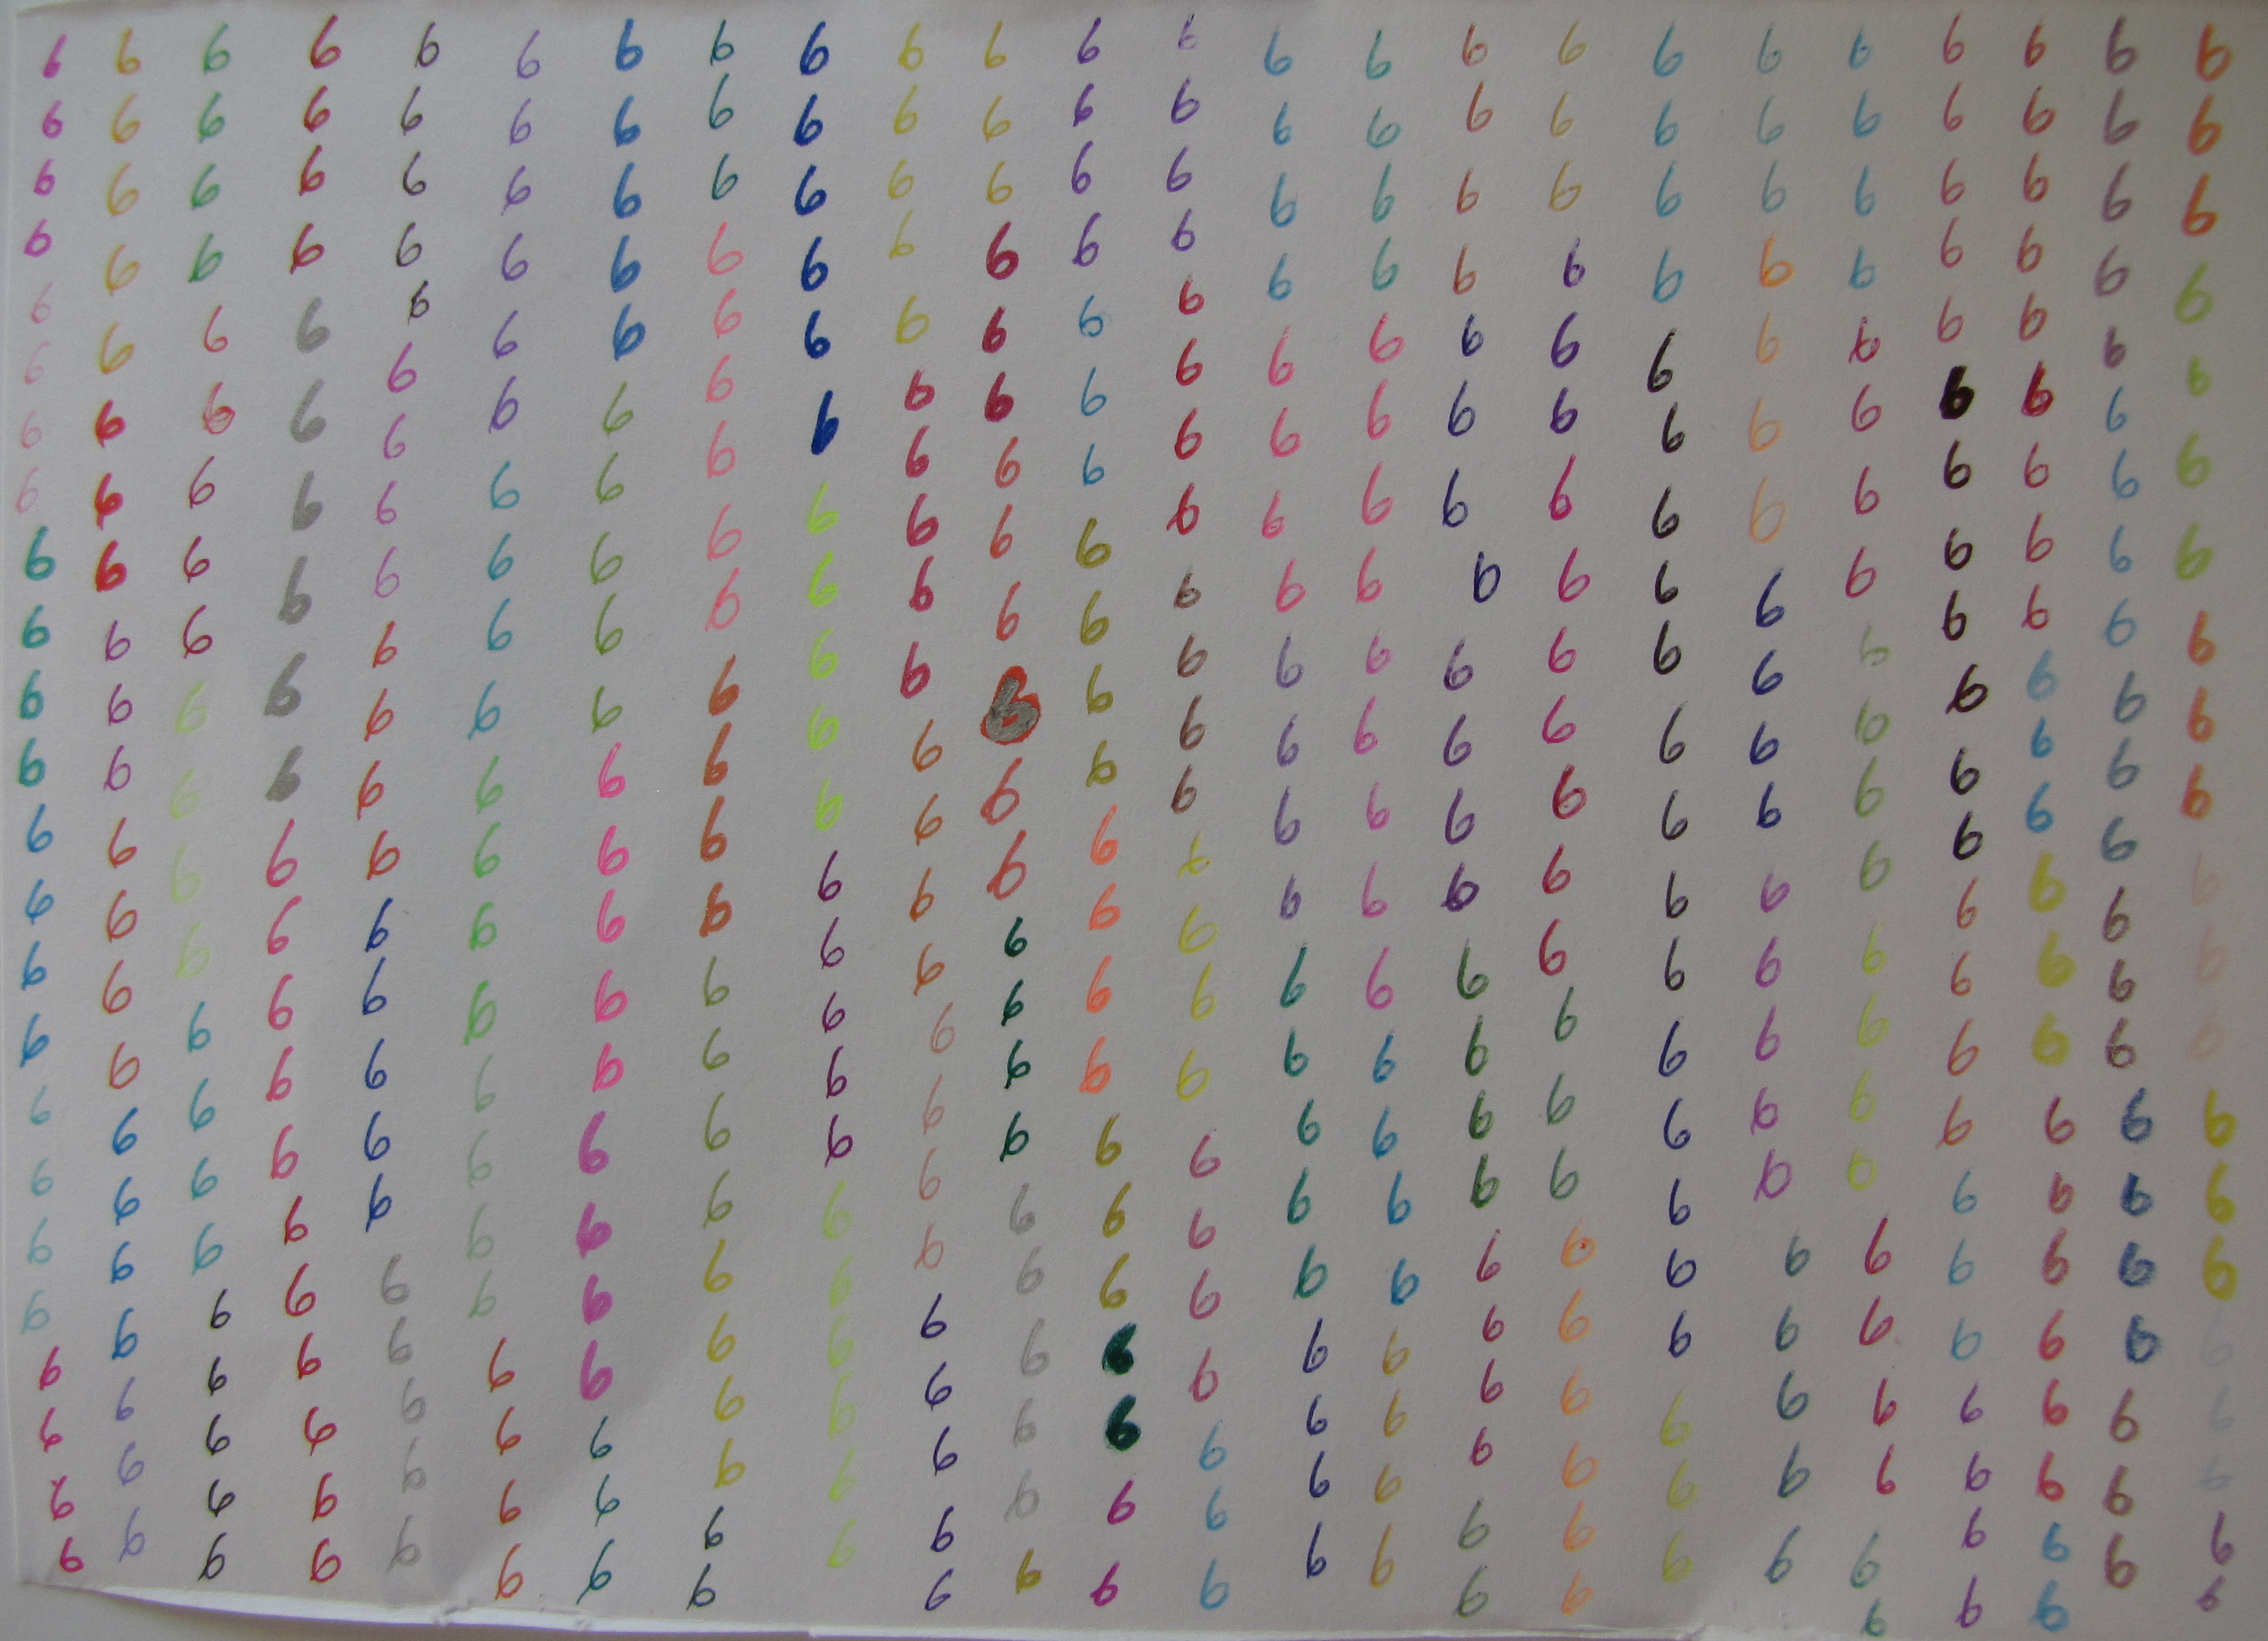 6 6 6 6 6 6 6 6 6 6 6 6 6 6 6 6 6 6 6 6 6 6 6 6
6 6 6 6 6 6 6 6 6 6 6 6 6 6 6 6 6 6 6 6 6 6 6 6
6 6 6 6 6 6 6 6 6 6 6 6 6 6 6 6 6 6 6 6 6 6 6 6
6 6 6 6 6 6 6 6 6 6 6 6 6 6 6 6 6 6 6 6 6 6 6 6
6 6 6 6 6 6 6 6 6 6 6 6 6 6 6 6 6 6 6 6 6 6 6 6
6 6 6 6 6 6 6 6 6 6 6 6 6 6 6 6 6 6 6 6 6 6 6 6
6 6 6 6 6 6 6 6 6 6 6 6 6 6 6 6 6 6 6 6 6 6 6 6
6 6 6 6 6 6 6 6 6 6 6 6 6 6 6 6 6 6 6 6 6 6 6 6
6 6 6 6 6 6 6 6 6 6 6 6 6 6 6 6 6 6 6 6 6 6 6 6
6 6 6 6 6 6 6 6 6 6 6 6 6 6 6 6 6 6 6 6 6 6 6 6
6 6 6 6 6 6 6 6 6 6 6 6 6 6 6 6 6 6 6 6 6 6 6 6
6 6 6 6 6 6 6 6 6 6 6 6 6 6 6 6 6 6 6 6 6 6 6 6
6 6 6 6 6 6 6 6 6 6 6 6 6 6 6 6 6 6 6 6 6 6 6 6
6 6 6 6 6 6 6 6 6 6 6 6 6 6 6 6 6 6 6 6 6 6 6 6
6 6 6 6 6 6 6 6 6 6 6 6 6 6 6 6 6 6 6 6 6 6 6 6
6 6 6 6 6 6 6 6 6 6 6 6 6 6 6 6 6 6 6 6 6 6 6 6
6 6 6 6 6 6 6 6 6 6 6 6 6 6 6 6 6 6 6 6 6 6 6 6
6 6 6 6 6 6 6 6 6 6 6 6 6 6 6 6 6 6 6 6 6 6 6 6
6 6 6 6 6 6 6 6 6 6 6 6 6 6 6 6 6 6 6 6 6 6 6 6
6 6 6 6 6 6 6 6 6 6 6 6 6 6 6 6 6 6 6 6 6 6 6 6
6 6 6 6 6 6 6 6 6 6 6 6 6 6 6 6 6 6 6 6 6 6 6
6 6 6 6 6 6 6 6 6 6 6 6 6 6 6 6 6